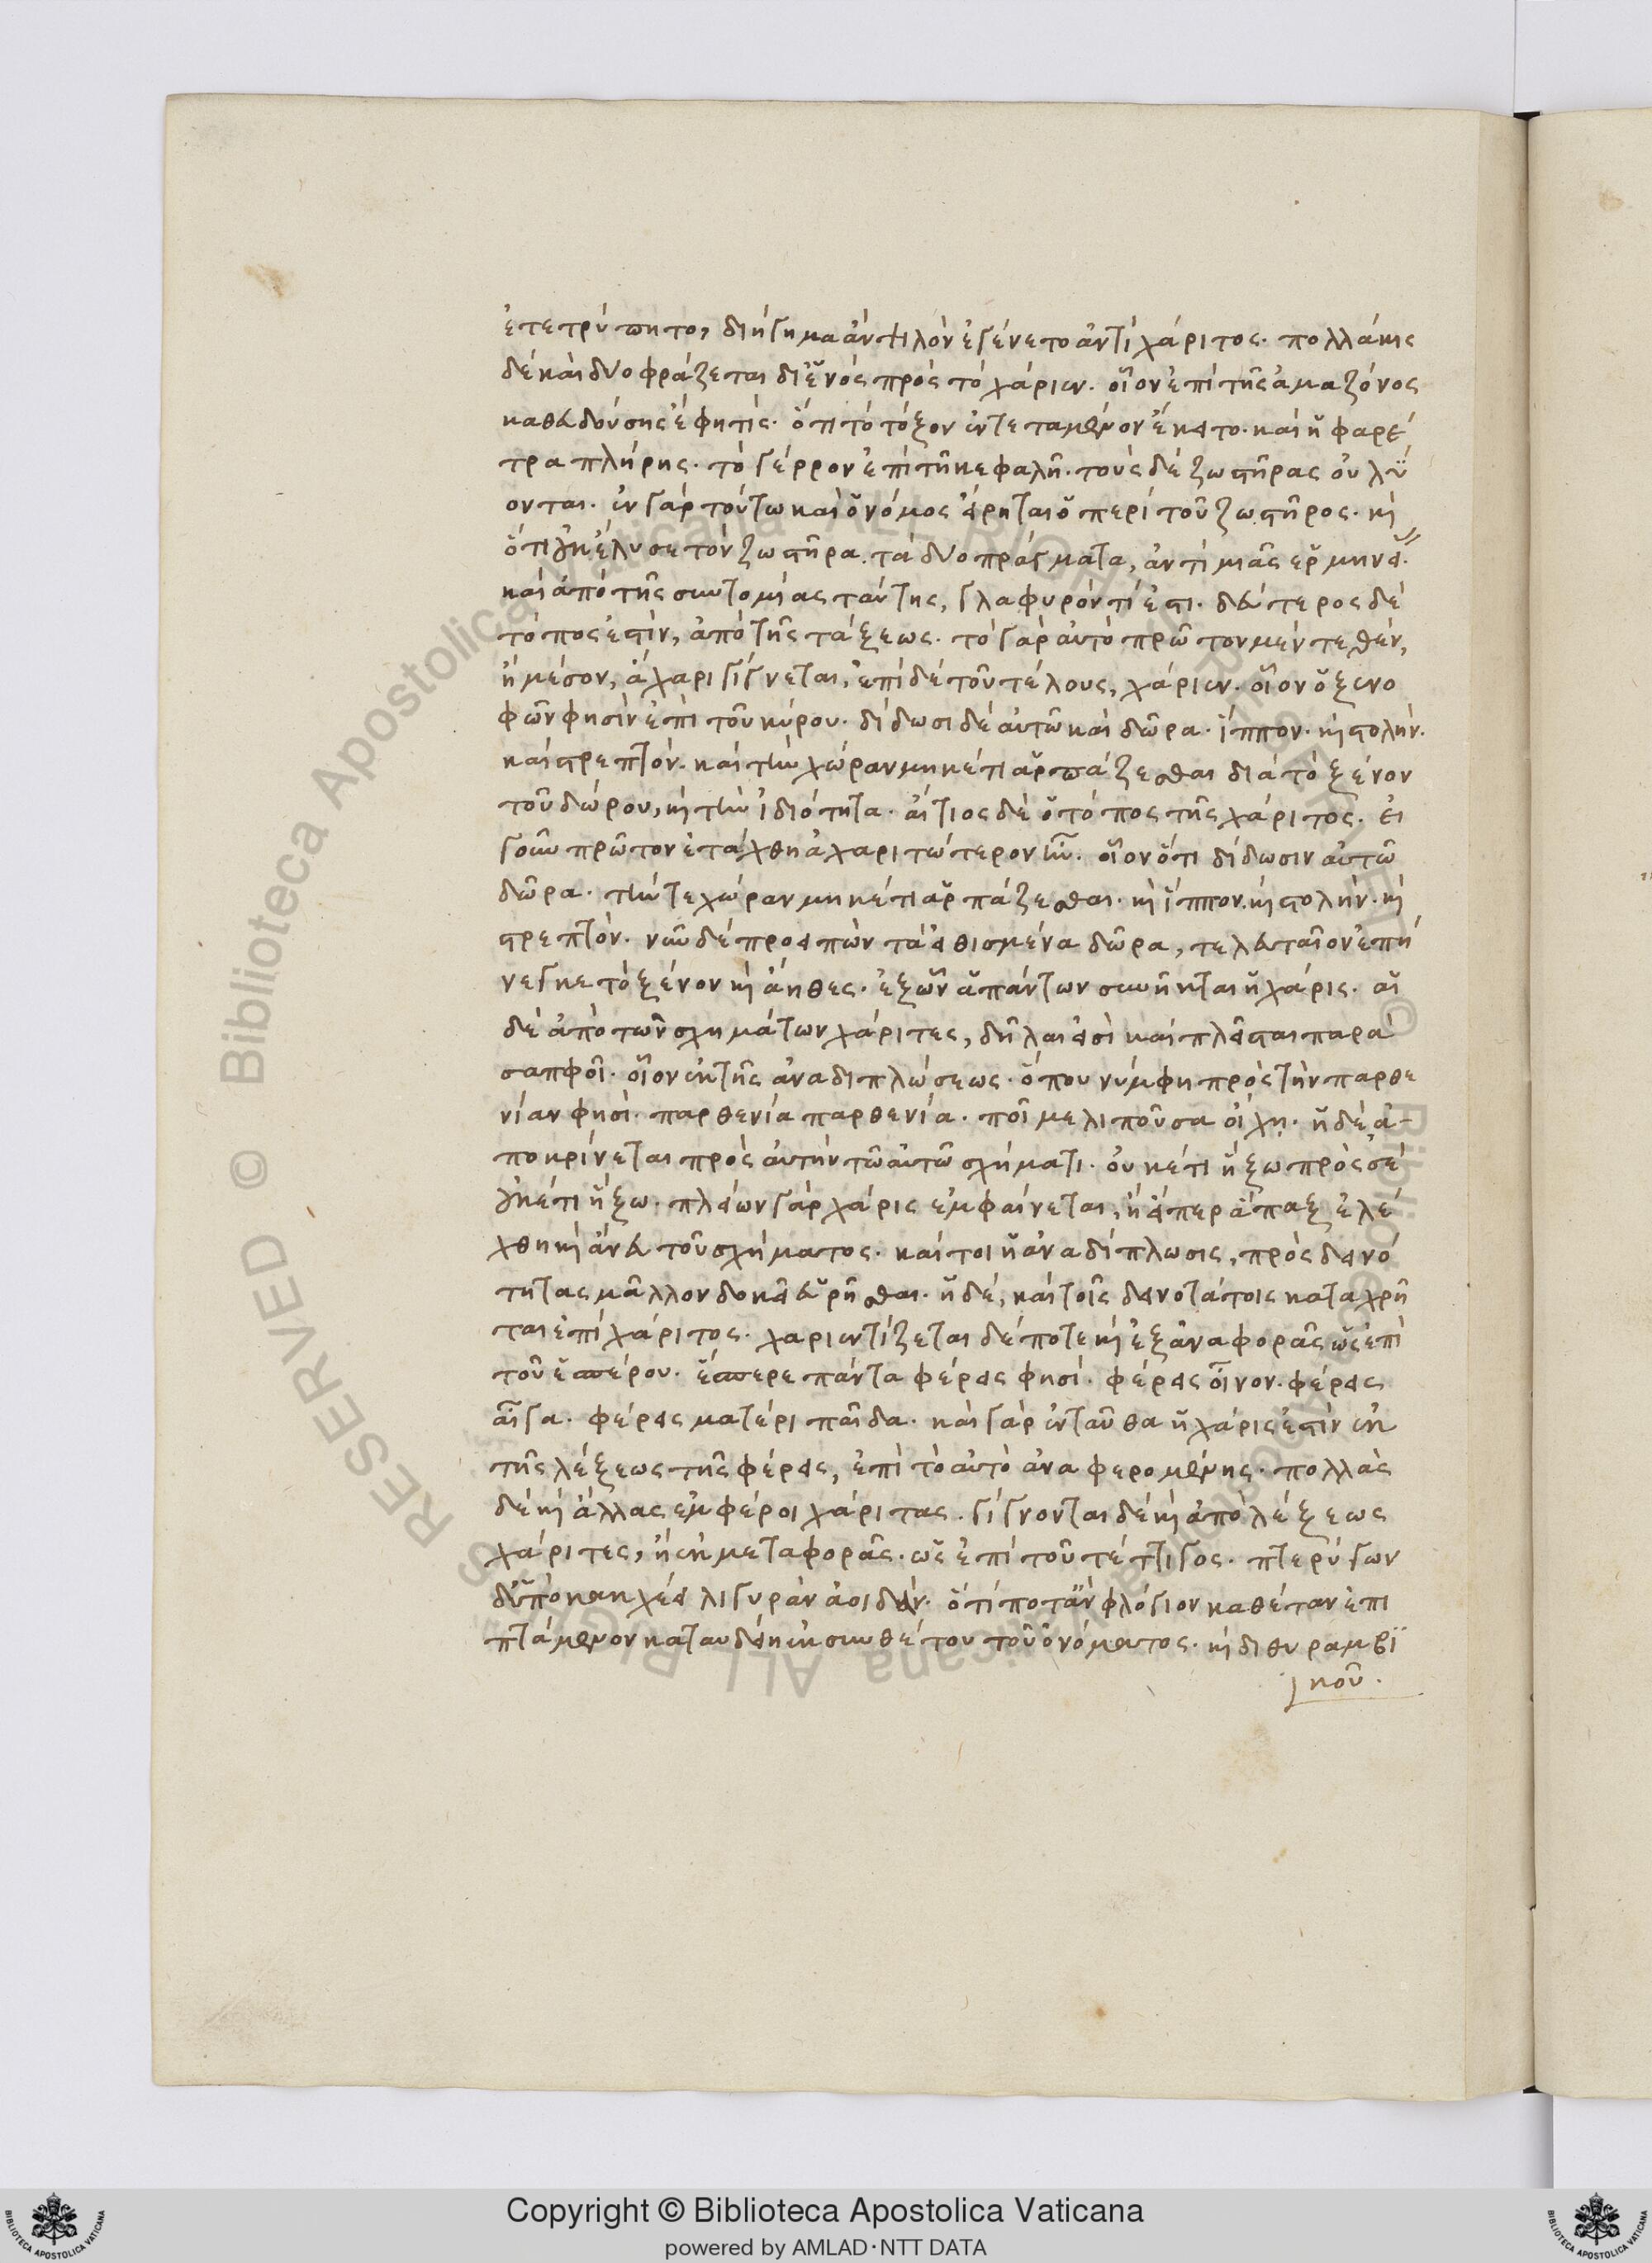 ἐτετρύπητο, διήγημα ἂν ψιλὸν ἐγένετο ἀντὶ χάριτος. πολλάκις
δὲ καὶ δύο φράζεται δι' ἑνὸς πρὸς τὸ χάριεν. οἷον ἐπὶ τῆς ἀμαζόνος
καθευδούσης ἔφη τίς. ὅτι τὸ τόξον ἐντεταμένον ἔκειτο. καὶ ἡ φαρέ
τρα πλήρης. τὸ γέρρον ἐπὶ τῆ κεφαλῆ. τοὺς δὲ ζωστῆρας οὐ λύ
ονται. ἐν γὰρ τούτω καὶ ὁ νόμος εἴρηται ὁ περὶ τοῦ ζωστῆρος. καὶ
ὅτι οὐκ ἔλυσε τὸν ζωστῆρα. τὰ δύο πράγματα, ἀντὶ μιᾶς ἑρμηνεί.
καὶ ἀπὸ τῆς συντομίας ταύτης, γλαφυρόν τί ἐστι. δεύτερος δὲ
τόπος ἐστὶν, ἀπὸ τῆς τάξεως. τὸ γὰρ αὐτὸ πρῶτον μὲν τεθὲν,
ἢ μέσον, ἄχαρι γίγνεται, ἐπὶ δὲ τοῦ τέλους, χάριεν. οἷον ὁ ξενο
φῶν φησὶν ἐπὶ τοῦ κύρου. δίδωσι δὲ αὐτῶ καὶ δῶρα. ἵππον. καὶ στολὴν.
καὶ στρεπτὸν. καὶ τὴν χώραν μηκέτι ἁρπάζεσθαι διὰ τὸ ξένον
τοῦ δώρου, καὶ τὴν ἰδιότητα. αἴτιος δὲ ὁ τόπος τῆς χάριτος. εἰ
γοῦν πρῶτον ἐτάχθη ἀχαριτώτερον ἦν. οἷον ὅτι δίδωσιν αὐτῶ
δῶρα. τήν τε χώραν μηκέτι ἁρπάζεσθαι. καὶ ἵππον. καὶ στολὴν. καὶ
στρεπτὸν. νῦν δὲ προειπὼν τὰ εἰθισμένα δῶρα, τελευταῖον ἐπή
νεγκε τὸ ξένον καὶ ἄηθες. ἐξ ὧν ἁπάντων συνῆκται ἡ χάρις. αἱ
δὲ ἀπὸ τῶν σχημάτων χάριτες, δῆλαι εἰσὶ καὶ πλεῖσται παρὰ
σαπφοῖ. οἷον ἐκ τῆς ἀναδιπλώσεως. ὅπου νύμφη πρὸς τὴν παρθε
νίαν φησὶ. παρθενία παρθενία. ποῖ με λιποῦσα οἴχη. ἡ δὲ ἀ-
ποκρίνεται πρὸς αὐτὴν τῶ αὐτῶ σχήματι. οὐκέτι ἥξω πρὸς σὲ
οὐκέτι ἥξω. πλείων γὰρ χάρις ἐμφαίνεται, ἢ εἴπερ ἅπαξ ἐλέ
χθη καὶ ἄνευ τοῦ σχήματος. καίτοι ἡ ἀναδίπλωσις, πρὸς δεινό
τητας μᾶλλον δοκεῖ εὑρῆσθαι. ἡ δὲ, καὶ τοῖς δεινοτάτοις καταχρῆ
ται ἐπὶ χάριτος. χαριεντίζεται δέ ποτε καὶ ἐξ ἀναφορᾶς ὡς ἐπὶ
τοῦ ἑσπέρου. ἕσπερε πάντα φέρεις φησὶ. φέρεις οἶνον. φέρεις
αἶγα. φέρεις ματέρι παῖδα. καὶ γὰρ ἐνταῦθα ἡ χάρις ἐστὶν ἐκ
τῆς λέξεως τῆς φέρεις, ἐπὶ τὸ αὐτὸ ἀναφερομένης. πολλὰς
δὲ καὶ ἄλλας ἐμφέροι χάριτας. γίγνονται δὲ καὶ ἀπὸ λέξεως
χάριτες, ἢ ἐκ μεταφορᾶς. ὡς ἐπὶ τοῦ τέττιγος. πτερύγων
δ' ὑποκακχέει λιγυρὰν ἀοιδάν. ὅτί ποτ' ἂν φλόγιον καθέταν ἐπι
πτάμενον καταυδείη ἐκ συνθέτου τοῦ ὀνόματος. καὶ διθυραμβι
κοῦ.
Copyright © Biblioteca Apostolica Vaticana
powered by AMLAD·NTT DATA